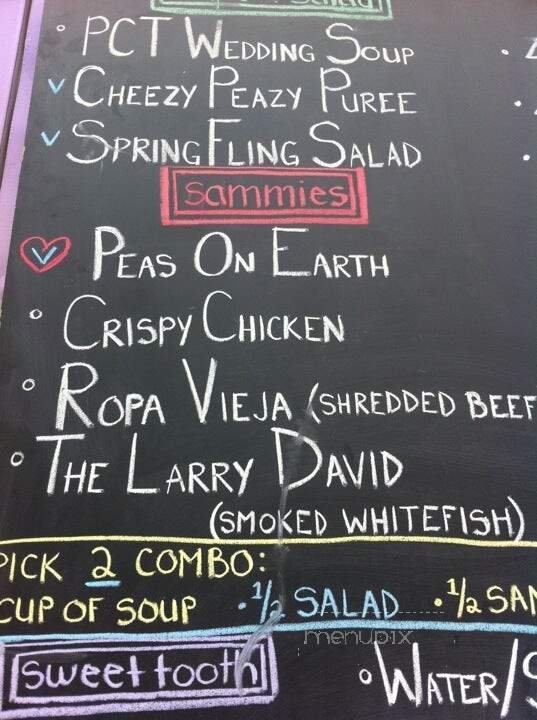 Salad
° PCT WEDDING SOUP
v CHEEZY PEAZY PUREE
v SPRING FLING SALAD
Sammies
v PEAS ON EARTH
° CRISPY CHICKEN
° ROPA VIEJA (SHREDDED BEEF
° THE LARRY DAVID
(SMOKED WHITEFISH)
PICK 2 COMBO:
CUP OF SOUP · 1/2 SALAD · 1/2 SAN
menupix
Sweet tooth
° WATER/S